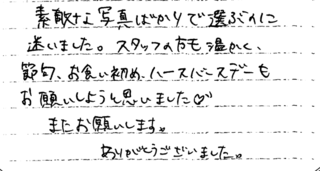 素敵な写真ばかりで選ぶのに
迷いました。スタッフの方も温かく、
節句、お食い初め、ハースバースデーも
お願いしようと思いました♡
またお願いします。
ありがとうございました。